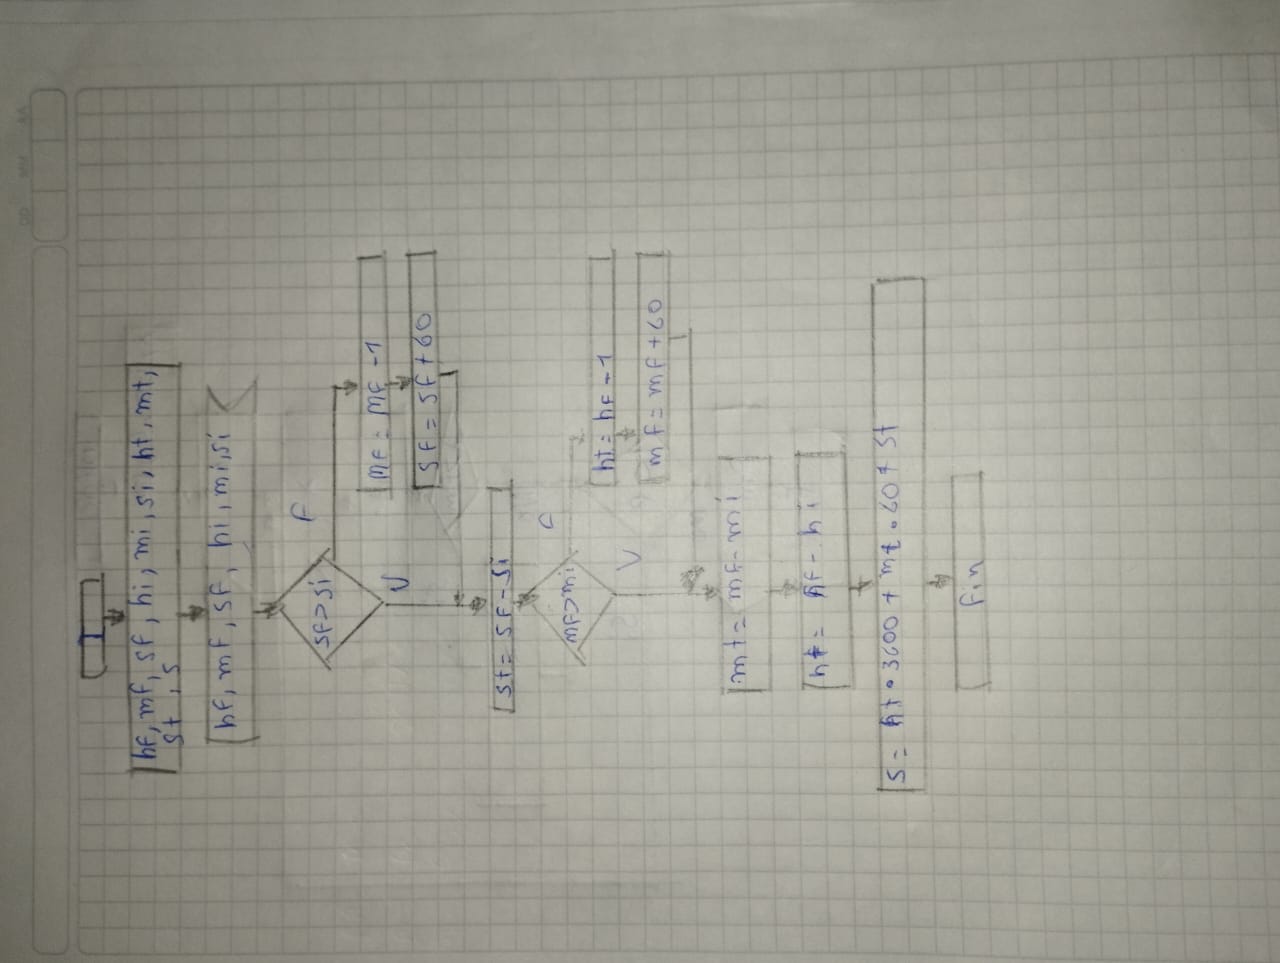 I
hf, mf, sf, hi, mi, si, ht, mt,
st, s
hf, mf, sf, hi, mi, si
sf>si
F
V
mf = mf - 1
sf = sf + 60
st = sf - si
mf>mi
F
V
ht = hf - 1
mf = mf + 60
mt = mf - mi
ht = hf - hi
s = ht • 3600 + mt • 60 + st
fin